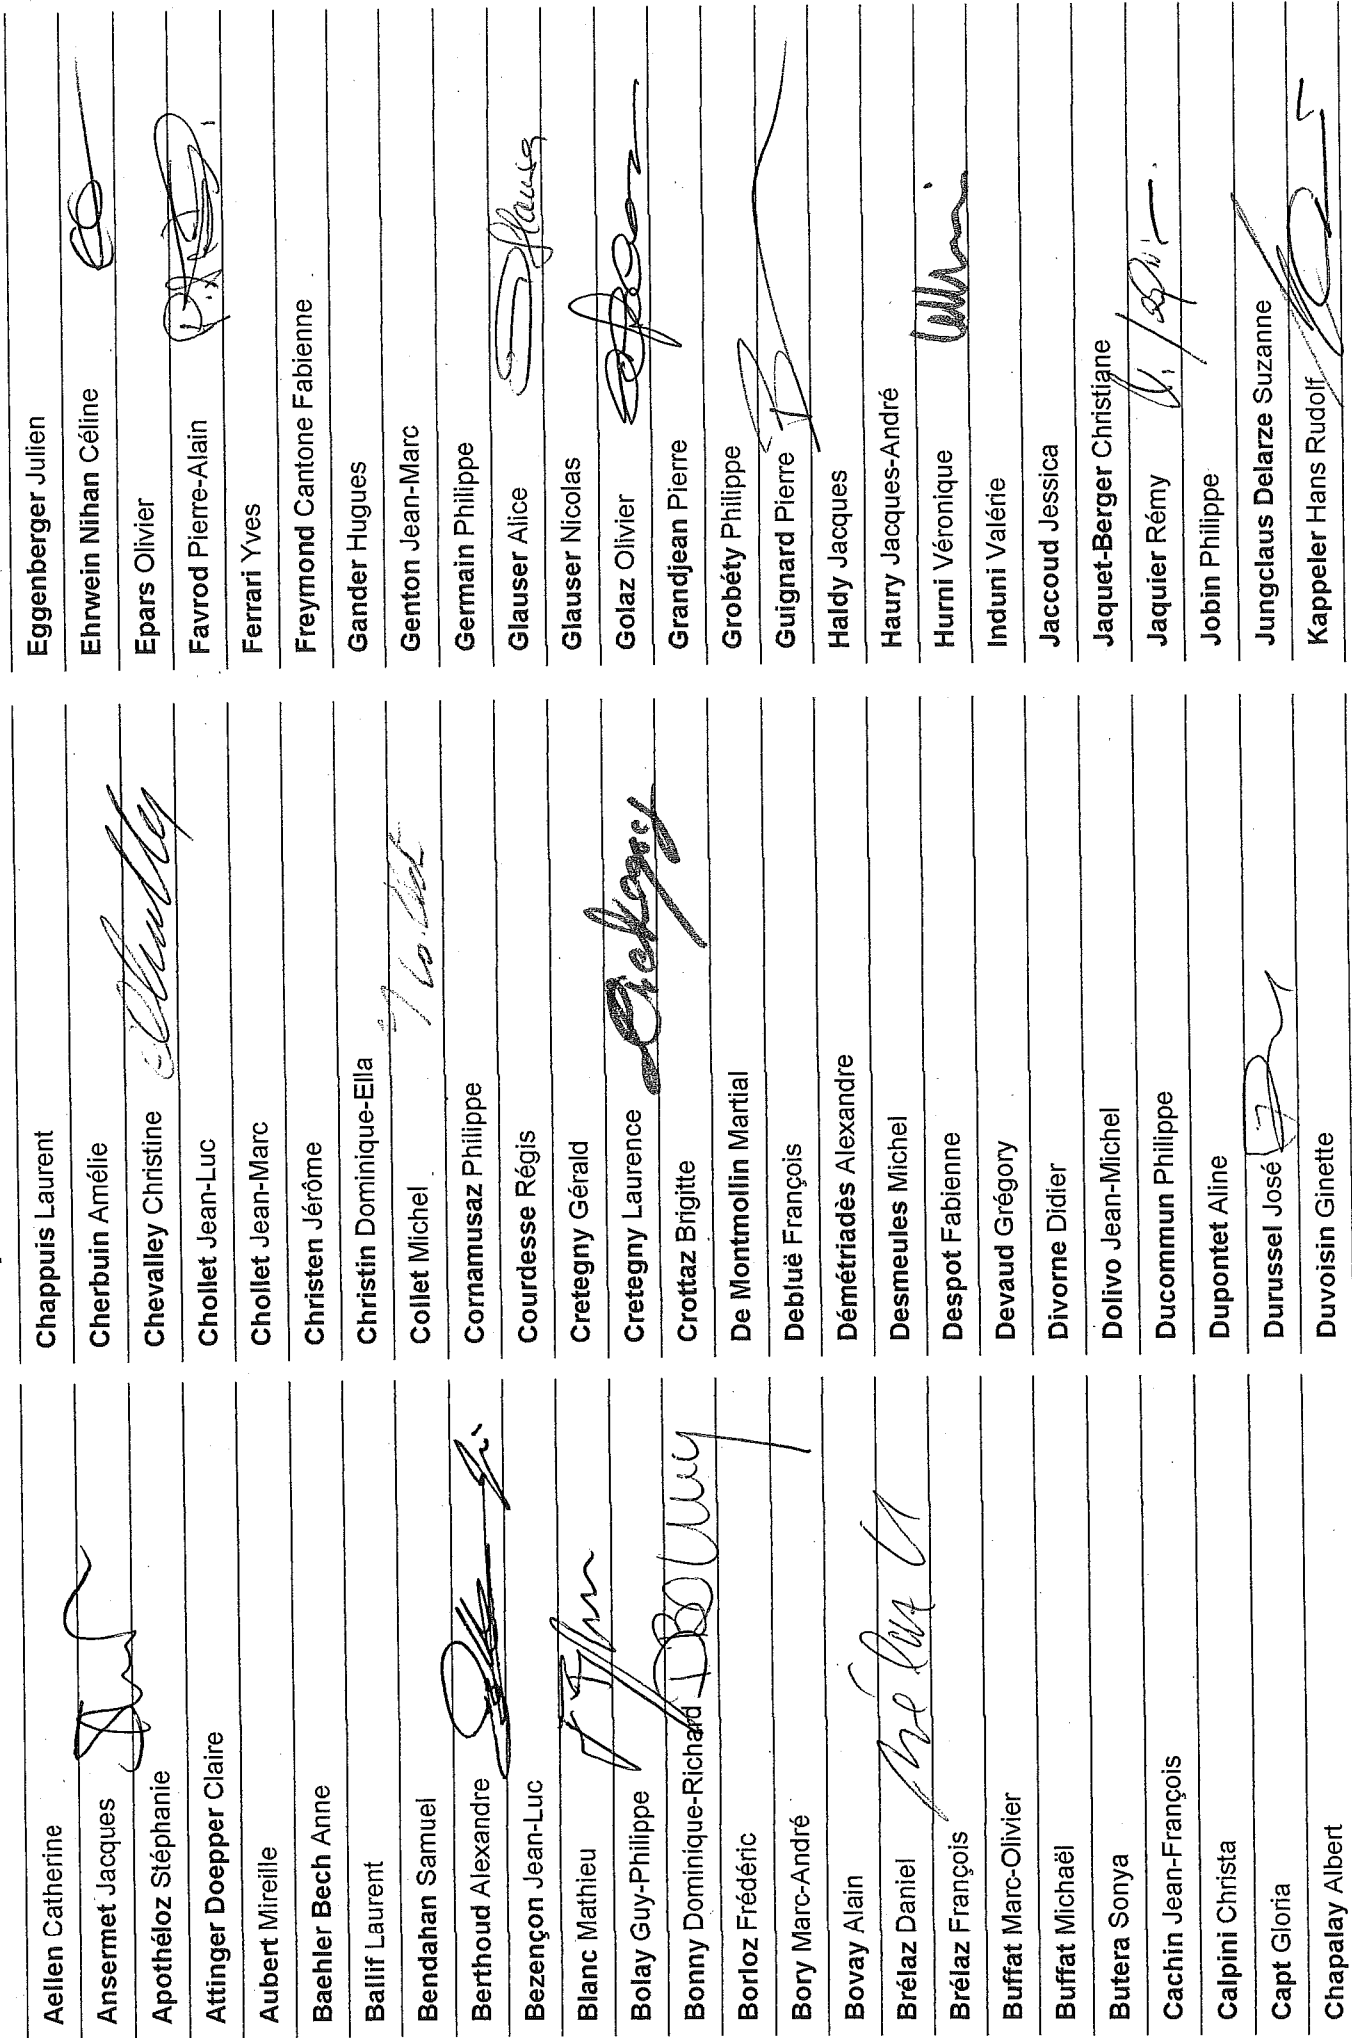 Aellen Catherine
Ansermet Jacques
Apothéloz Stéphanie
Attinger Doepper Claire
Aubert Mireille
Baehler Bech Anne
Ballif Laurent
Bendahan Samuel
Berthoud Alexandre
Bezençon Jean-Luc
Blanc Mathieu
Bolay Guy-Philippe
Bonny Dominique-Richard DBonny
Borloz Frédéric
Bory Marc-André
Bovay Alain
Brélaz Daniel
Brélaz François
Buffat Marc-Olivier
Buffat Michaël
Butera Sonya
Cachin Jean-François
Calpini Christa
Capt Gloria
Chapalay Albert
Chappuis Laurent
Cherbuin Amélie
Chevalley Christine
Chollet Jean-Luc
Chollet Jean-Marc
Christen Jérôme
Christin Dominique-Ella
Collet Michel
Cornamusaz Philippe
Courdesse Régis
Cretegny Gérald
Cretegny Laurence Cretegny
Crottaz Brigitte
De Montmollin Martial
Debluë François
Démétriadès Alexandre
Desmeules Michel
Despot Fabienne
Devaud Grégory
Divorne Didier
Dolivo Jean-Michel
Ducommun Philippe
Dupontet Aline
Durussel José
Duvoisin Ginette
Eggenberger Julien
Ehrwein Nihan Céline
Epars Olivier
Favrod Pierre-Alain
Ferrari Yves
Freymond Cantone Fabienne
Gander Hugues
Genton Jean-Marc
Germain Philippe
Glauser Alice
Glauser Nicolas
Golaz Olivier
Grandjean Pierre
Grobéty Philippe
Guignard Pierre
Haldy Jacques
Haury Jacques-André
Hurni Véronique
Induni Valérie
Jaccoud Jessica
Jaquet-Berger Christiane
Jaquier Rémy
Jobin Philippe
Jungclaus Delarze Suzanne
Kappeler Hans Rudolf